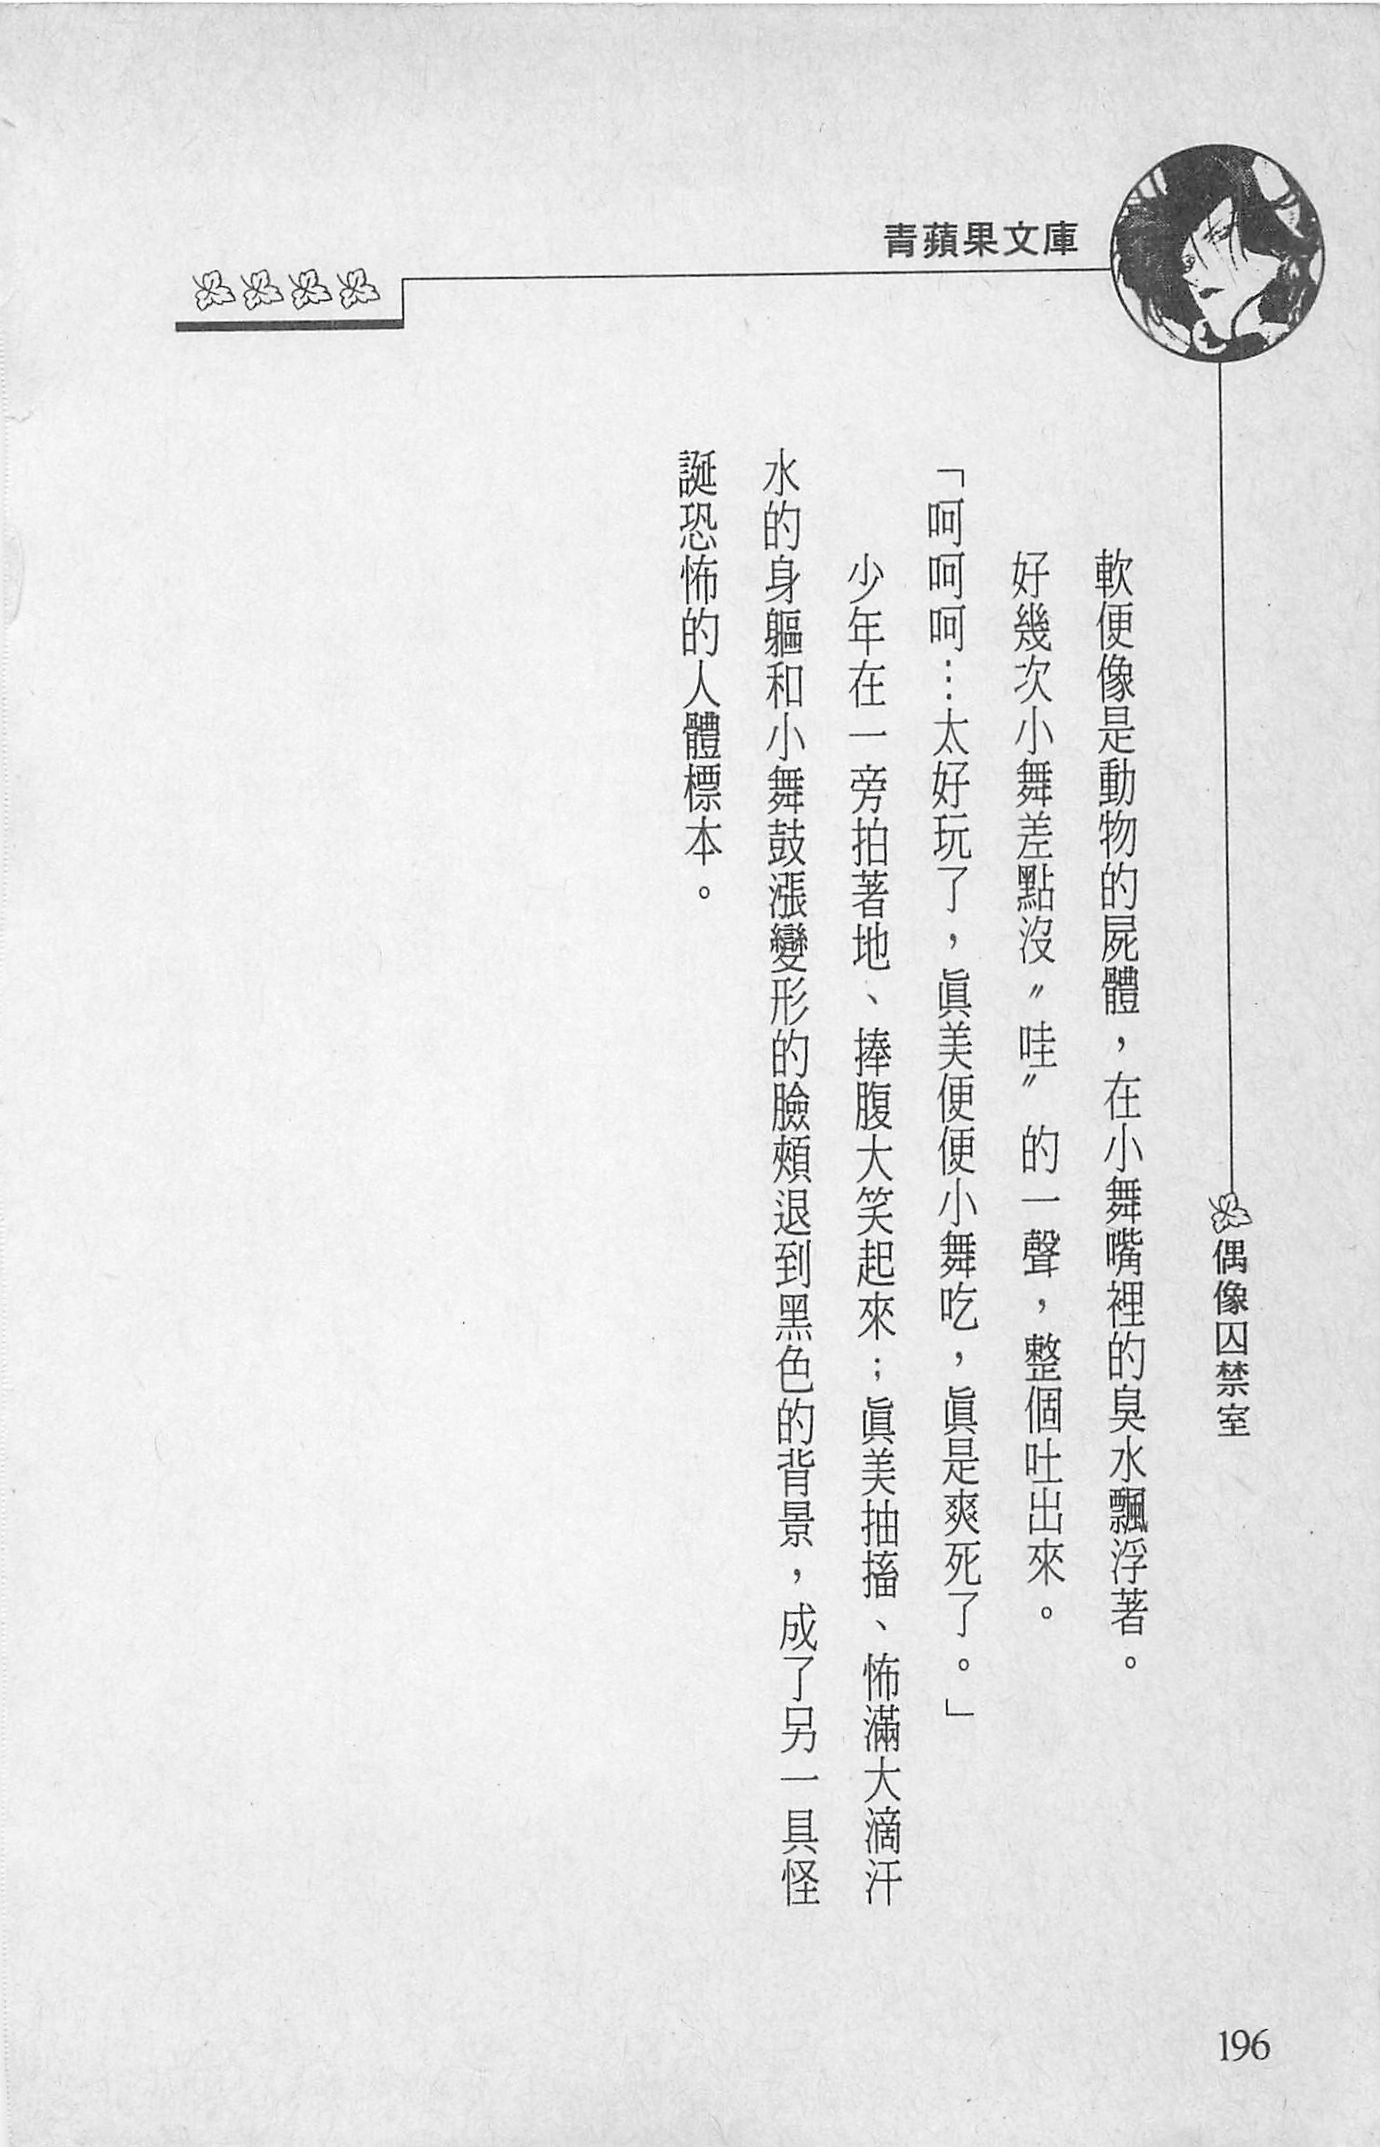 青蘋果文庫
偶像囚禁室
軟便像是動物的屍體，在小舞嘴裡的臭水飄浮著。
好幾次小舞差點沒〝哇〞的一聲，整個吐出來。
「呵呵呵…太好玩了，眞美便便小舞吃，眞是爽死了。」
少年在一旁拍著地、捧腹大笑起來；眞美抽搐、怖滿大滴汗
水的身軀和小舞鼓漲變形的臉頰退到黑色的背景，成了另一具怪
誕恐怖的人體標本。
196